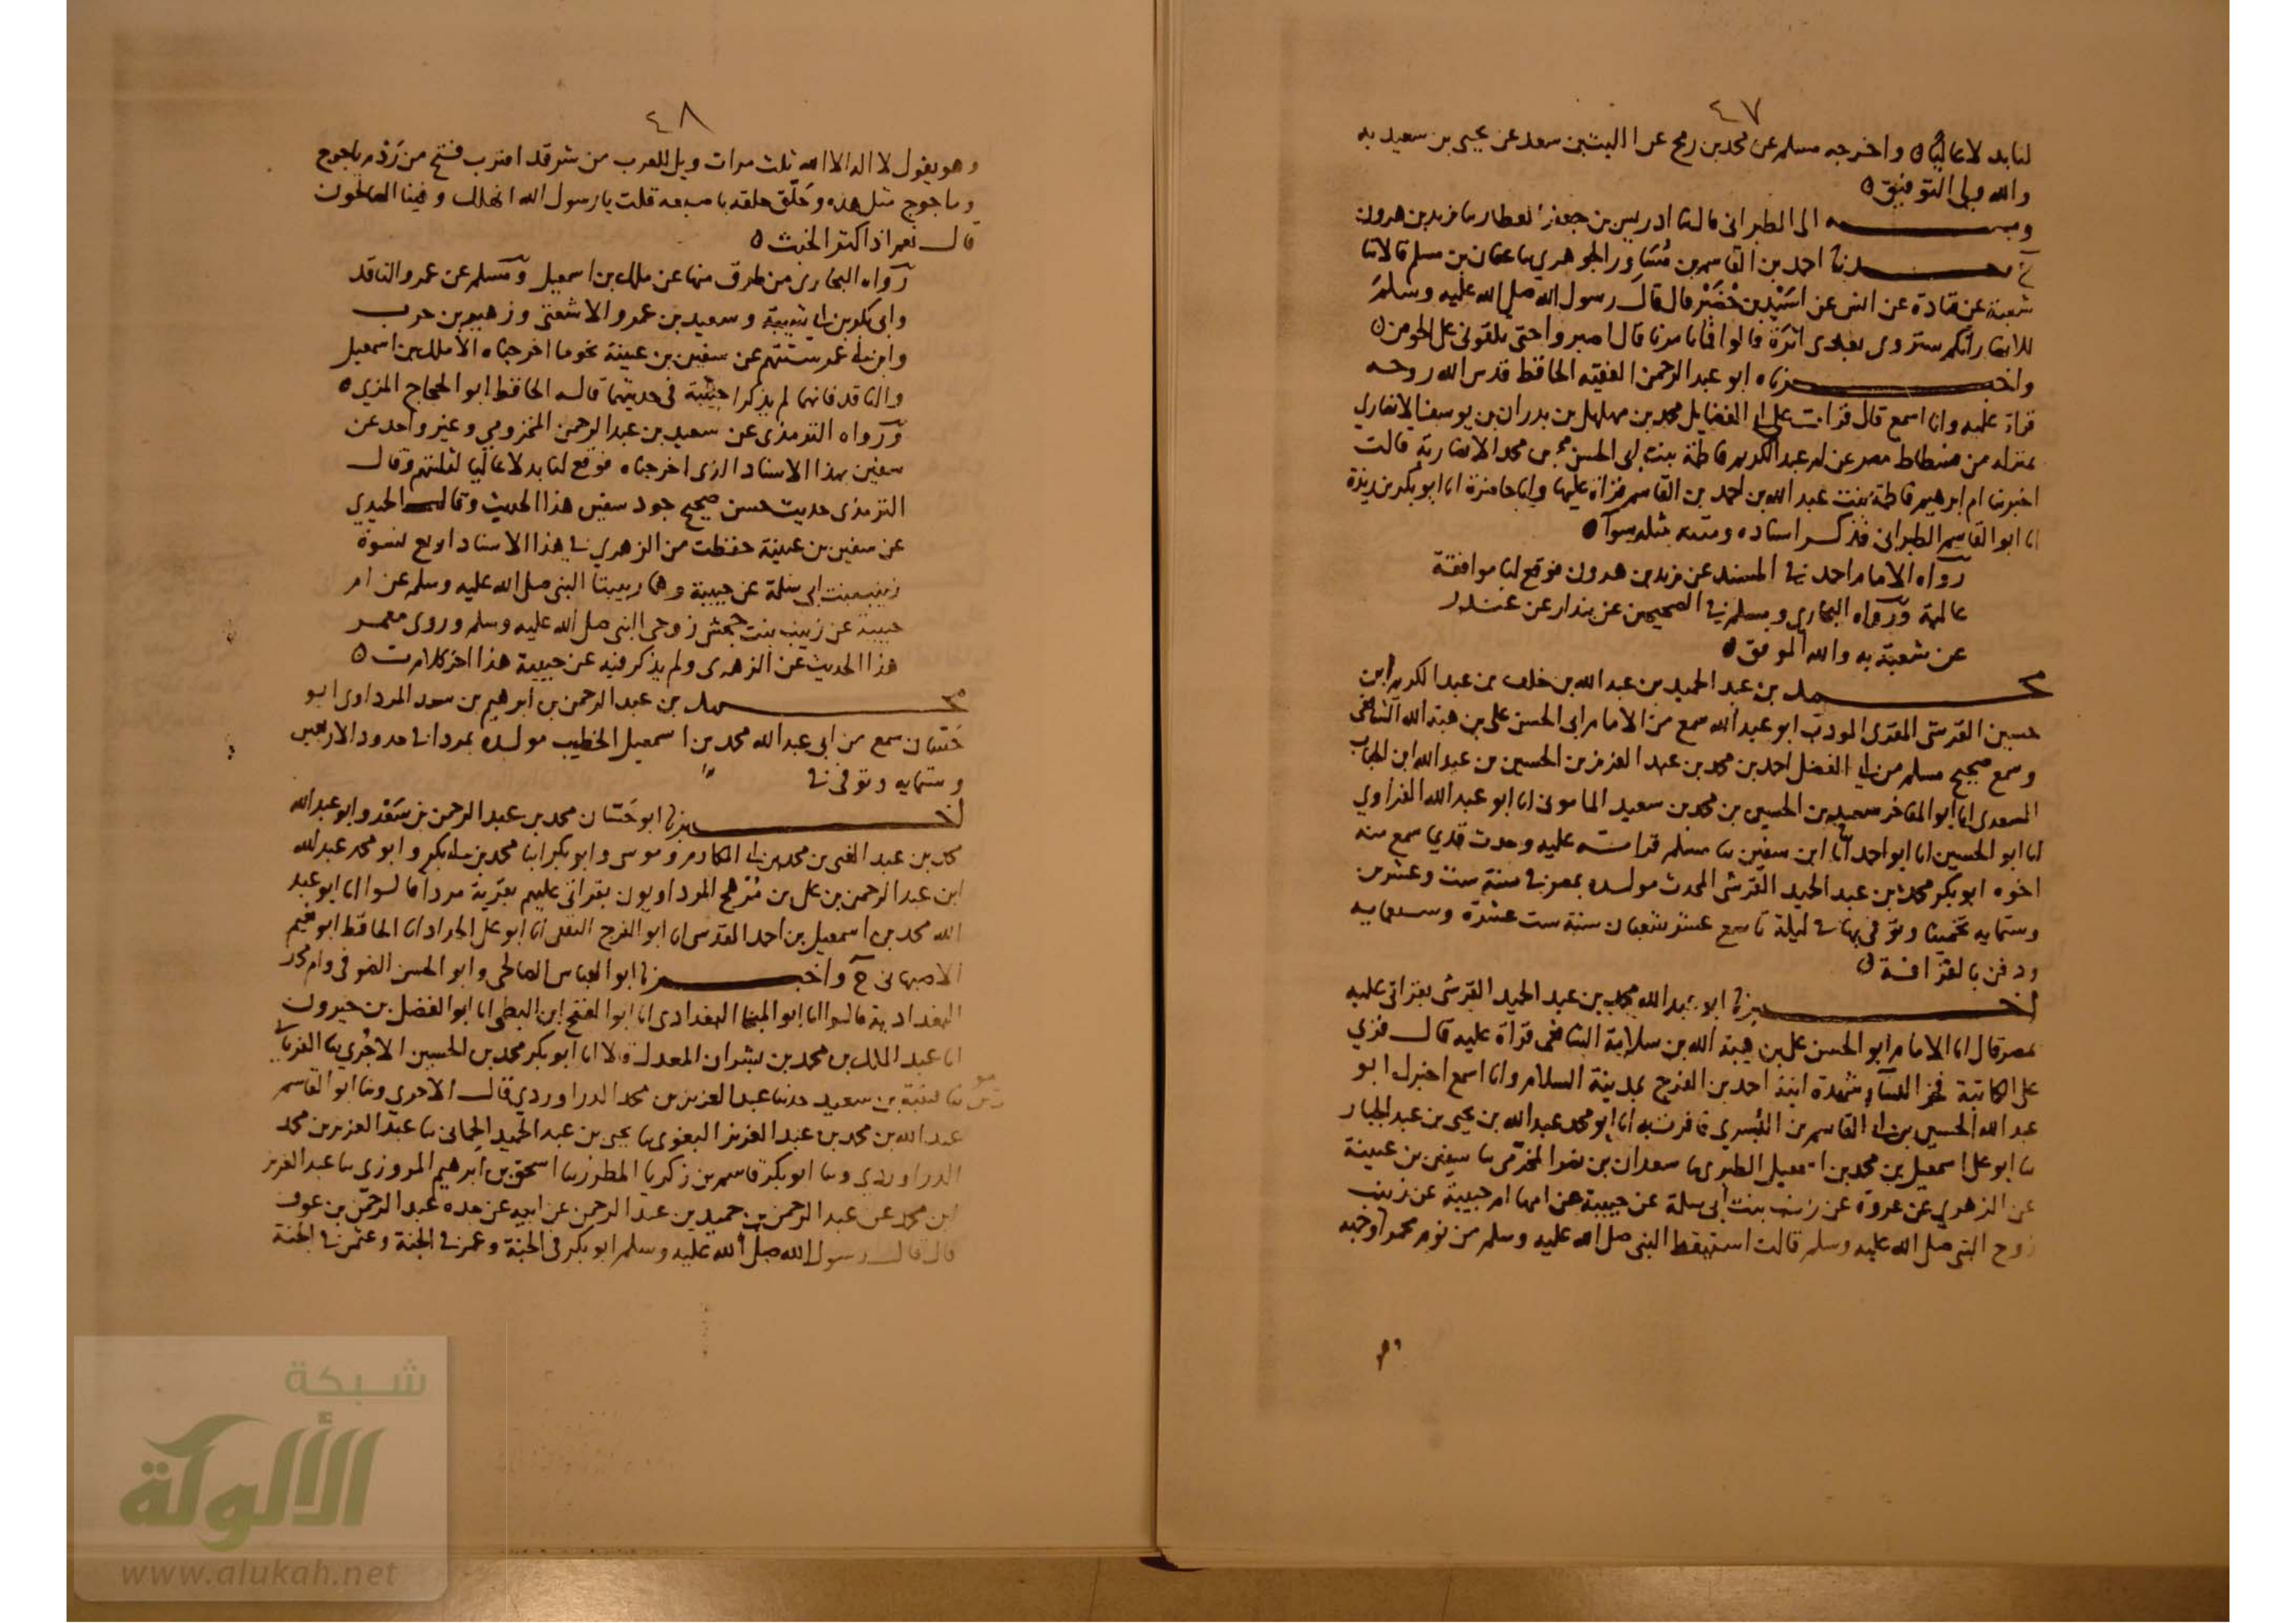 ٤٧
لنا بدلا عاليا ه واخرجه مسلم عن محمد بن رمح عن الليث بن سعد عن يحيى بن سعيد به
والله ولي التوفيق ه
وبه الى الطبراني قال ثنا ادريس بن جعفر العطار ثنا يزيد بن هرون
ح وحدثنا احمد بن القاسم بن مساور الجوهري ثنا عفان بن مسلم قالا ثنا
شعبة عن قتادة عن انس عن اسيد بن حضير قال قال رسول الله صلى الله عليه وسلم
للانصار انكم سترون بعدي اثرة قالوا فما تامرنا قال اصبروا حتى تلقوني على الحوض ه
واخبرناه ابو عبد الرحمن الفقيه الحافظ قدس الله روحه
قراة عليه وانا اسمع قال قرات على ابي الفضايل محمد بن مهلهل بن بدران بن يوسف الانصاري
بمنزله من فسطاط مصر عن ام عبد الكريم فاطمة بنت ابي الحسن محمد الانصارية قالت
اخبرتنا ام ابرهيم فاطمة بنت عبد الله بن احمد بن القاسم قراة عليها وانا حاضرة انا ابو بكر بن ريذة
انا ابو القاسم الطبراني فذكر اسناده ومتنه مثله سوآ ه
رواه الامام احمد في المسند عن يزيد بن هرون فوقع لنا موافقة
عالية ورواه البخاري ومسلم في الصحيحين عن بندار عن غندر
عن شعبة به والله الموفق ه
محمد بن عبد الحميد بن عبد الله بن خلف بن عبد الكريم ابن
حسين القرشي المقرى المودب ابو عبد الله سمع من الامام ابي الحسن علي بن هبة الله الشافعي
وسمع صحيح مسلم من ابي الفضل احمد بن محمد بن عبد العزيز بن الحسين بن عبد الله ابن الجباب
السعدي انا ابو المفاخر سعيد بن الحسين بن محمد بن سعيد الماموني انا ابو عبد الله الفراوي
انا ابو الحسين انا ابو احمد انا ابن سفين ثنا مسلم قرات عليه وحدث قديما سمع منه
اخوه ابو بكر محمد بن عبد الحميد القرشي المحدث مولده بمصر في سنة ست وعشرين
وستمايه تخمينا وتوفي بها في ليلة تاسع عشر شعبان سنة ست عشرة وسبعمايه
ودفن بالقرافة ه
اخبرنا ابو عبد الله محمد بن عبد الحميد القرشي بقراتي عليه
بمصر قال انا الامام ابو الحسن علي بن هبة الله بن سلامة الشافعي قراة عليه قال قري
على الكاتبة فخر النساء شهدة ابنة احمد بن الفرج بمدينة السلام وانا اسمع اخبرك ابو
عبد الله الحسين بن ابي القاسم بن البسري فاقرت به انا ابو محمد عبد الله بن يحيى بن عبد الجبار
ثنا ابو علي اسمعيل بن محمد بن اسمعيل ثنا سعدان بن نصر المخرمي ثنا سفين بن عيينة
عن الزهري عن عروة عن زينب بنت ابي سلمة عن حبيبة عن امها ام حبيبة عن زينب
زوج النبي صلى الله عليه وسلم قالت استيقظ النبي صلى الله عليه وسلم من نوم محمرا وجهه
٤٨
وهو يقول لا اله الا الله ثلث مرات ويل للعرب من شر قد اقترب فتح من ردم ياجوج
وماجوج مثل هذه وحلق حلقة باصبعه قلت يا رسول الله انهلك وفينا الصالحون
قال نعم اذا كثر الخبث ه
رواه البخاري من طرق منها عن ملك بن اسمعيل ومسلم عن عمرو الناقد
وابي بكر بن ابي شيبة وسعيد بن عمرو الاشعثي وزهير بن حرب
وابن ابي عمر ستتهم عن سفين بن عيينة نحو ما اخرجناه الا ملك بن اسمعيل
والناقد فانهما لم يذكرا حبيبة في حديثهما قاله الحافظ ابو الحجاج المزي ه
ورواه الترمذي عن سعيد بن عبد الرحمن المخزومي وغير واحد عن
سفين بهذا الاسناد الذي اخرجناه فوقع لنا بدلا عاليا لثلثتهم وقال
الترمذي حديث حسن صحيح جود سفين هذا الحديث وقال الحميدي
عن سفين بن عيينة حفظت من الزهري في هذا الاسناد اربع نسوة
زينب بنت ابي سلمة عن حبيبة وهما ربيبتا النبي صلى الله عليه وسلم عن ام
حبيبة عن زينب بنت جحش زوجي النبي صلى الله عليه وسلم وروى معمر
هذا الحديث عن الزهري ولم يذكر فيه عن حبيبة هذا اخر كلام ت ه
محمد بن عبد الرحمن بن ابرهيم بن سعد المرداوي ابو
حسان سمع من ابي عبد الله محمد بن اسمعيل الخطيب مولده بمردا في حدود الاربعين
وستمايه وتوفي في
اخبرنا ابو حسان محمد بن عبد الرحمن بن سعد وابو عبد الله
محمد بن عبد الغني بن محمد بن ابي المكارم وموسى وابو بكر ابنا محمد بن ابي بكر وابو محمد عبد الله
ابن عبد الرحمن بن علي بن مفرح المرداويون بقراتي عليهم بقرية مردا قالوا انا ابو عبد
الله محمد بن اسمعيل بن احمد المقدسي انا ابو الفرج الثقفي انا ابو علي الحداد انا الحافظ ابو نعيم
الاصبهاني ح واخبرنا ابو العباس الصالحي وابو الحسن الصوفي وام محمد
البغدادية قالوا انا ابو المنجا البغدادي انا ابو الفتح ابن البطي انا ابو الفضل بن خيرون
انا عبد الملك بن محمد بن بشران المعدل قالا انا ابو بكر محمد بن الحسين الاجري ثنا الفريابي
ثنا قتيبة بن سعيد حدثنا عبد العزيز بن محمد الدراوردي قال الاجري وثنا ابو القاسم
عبد الله بن محمد بن عبد العزيز البغوي ثنا يحيى بن عبد الحميد الحماني ثنا عبد العزيز بن محمد
الدراوردي وثنا ابو بكر قاسم بن زكريا المطرز ثنا اسحق بن ابرهيم المروزي ثنا عبد العزيز
ابن محمد عن عبد الرحمن بن حميد بن عبد الرحمن عن ابيه عن جده عبد الرحمن بن عوف
قال قال رسول الله صلى الله عليه وسلم ابو بكر في الجنة وعمر في الجنة وعثمن في الجنة
شبكة
الألوكة
www.alukah.net